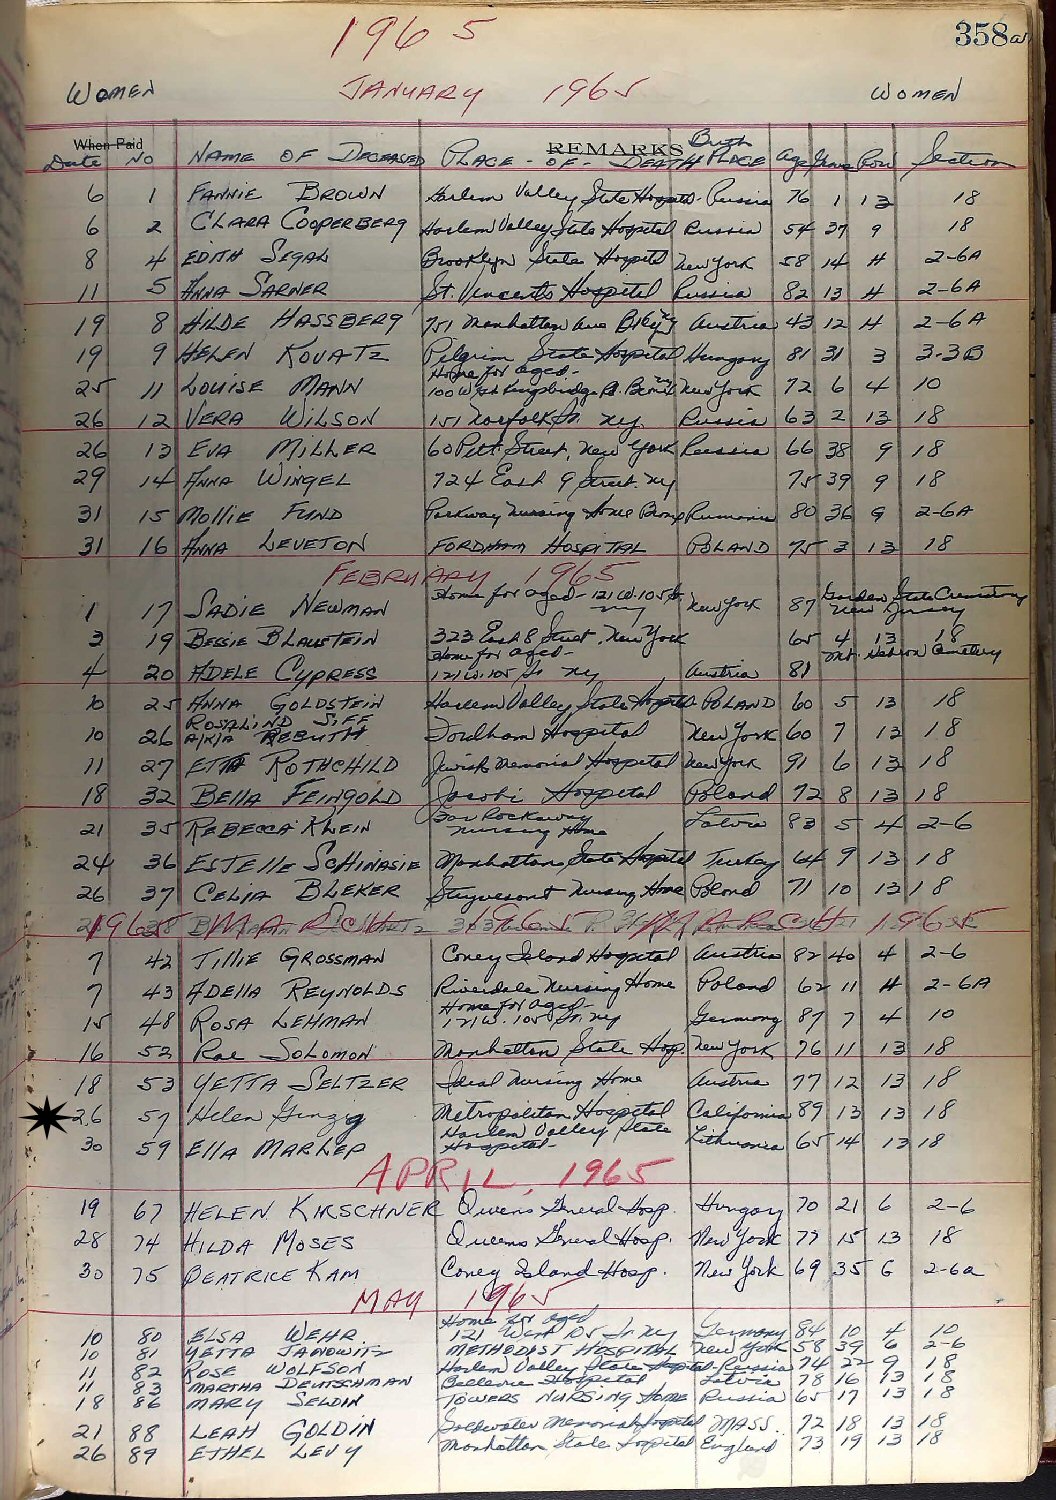 1965
358
WOMEN JANUARY 1965 WOMEN
When Paid REMARKS
Date No NAME OF DECEASED PLACE - OF - DEATH Birth PLACE Age Grave Row Section
6 1 FANNIE BROWN Harlem Valley State Hospital Russia 76 1 13 18
6 2 CLARA COOPERBERG Harlem Valley State Hospital Russia 54 37 9 18
8 4 EDITH SEGAL Brooklyn State Hospital New York 58 14 H 2-6A
11 5 ANNA SARNER St. Vincents Hospital Russia 82 13 H 2-6A
19 8 HILDE HASSBERG 751 Manhattan Ave Bklyn Austria 43 12 H 2-6A
19 9 HELEN KOVATZ Pilgrim State Hospital Hungary 81 31 3 3-3B
Home for aged-
25 11 LOUISE MANN 100 West Kingsbridge Rd. Bronx New York 72 6 4 10
26 12 VERA WILSON 151 Norfolk St. ny. Russia 63 2 13 18
26 13 EVA MILLER 60 Pitt Street, New York Russia 66 38 9 18
29 14 ANNA WINGEL 724 East 9 Street. ny 75 39 9 18
31 15 MOLLIE FUND Parkway Nursing Home Bronx Rumania 80 36 G 2-6A
31 16 ANNA LEVETON FORDHAM HOSPITAL POLAND 75 3 13 18
FEBRUARY 1965
1 17 SADIE NEWMAN Home for aged - 121 W. 105 St. ny New York 87 Garden State Crematory New Jersey
3 19 BESSIE BLAUSTEIN 323 East 8 Street, New York 65 4 13 18
Home for aged-
4 20 ADELE CYPRESS 121 W. 105 St ny Austria 81 Mt. Hebron Cemetery
10 25 ANNA GOLDSTEIN Harlem Valley State Hospital POLAND 60 5 13 18
ROSALIND SIFF
10 26 A/K/A Fordham Hospital New York 60 7 13 18
11 27 ETTA ROTHCHILD Jewish Memorial Hospital New York 91 6 13 18
18 32 BELLA FEINGOLD Jacobi Hospital Poland 72 8 13 18
21 35 REBECCA KLEIN Far Rockaway Nursing Home Latvia 83 5 4 2-6
24 36 ESTELLE SCHINASIE Manhattan State Hospital Turkey 64 9 13 18
26 37 CELIA BLEKER Stuyvesant Nursing Home Poland 71 10 13 18
1965 MARCH 1965 MARCH 1965
7 42 TILLIE GROSSMAN Coney Island Hospital Austria 82 40 4 2-6
7 43 ADELLA REYNOLDS Riverdale Nursing Home Poland 62 11 H 2-6A
Home for aged-
15 48 ROSA LEHMAN 121 W. 105 St. ny Germany 87 7 4 10
16 52 Rae SOLOMON Manhattan State Hosp. New York 76 11 13 18
18 53 YETTA SELTZER Ideal Nursing Home Austria 77 12 13 18
26 57 Helen Ginzig Metropolitan Hospital California 89 13 13 18
30 59 ELLA MARKEP Harlem Valley State Hospital- Lithuania 65 14 13 18
APRIL, 1965
19 67 HELEN KIRSCHNER Queens General Hosp. Hungary 70 21 6 2-6
28 74 HILDA MOSES Queens General Hosp. New York 77 15 13 18
30 75 BEATRICE KAM Coney Island Hosp. New York 69 35 G 2-6a
MAY 1965
Home for aged
10 80 ELSA WEHR 121 West 105 St ny Germany 84 10 4 10
10 81 YETTA JANOWITZ METHODIST HOSPITAL New York 58 39 6 2-6
11 82 ROSE WOLFSON Harlem Valley State Hospital Russia 74 22 9 18
11 83 MARTHA DEUTSCHMAN Bellevue Hospital Latvia 78 16 13 18
18 86 MARY SELDIN TOWERS NURSING HOME Russia 65 17 13 18
21 88 LEAH GOLDIN Goldwater Memorial Hospital MASS. 72 18 13 18
26 89 ETHEL LEVY Manhattan State Hospital England 73 19 13 18